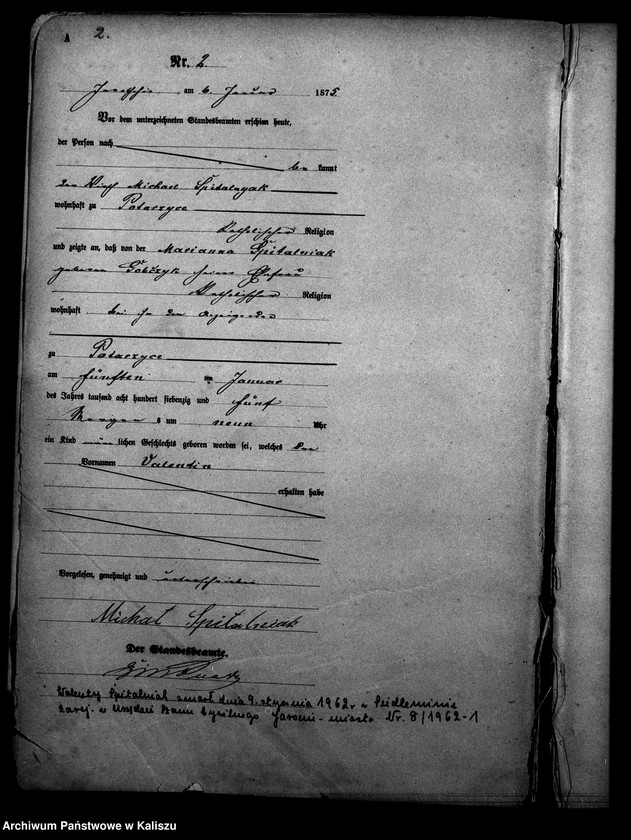 A 2.
Nr. 2
am 6. Januar 1875.
Vor dem unterzeichneten Standesbeamten erschien heute,
der Person nach
be kannt
der Wirth Michael Spitalnyak
wohnhaft zu Potarzyce
katholischer Religion
und zeigte an, daß von der Marianna Spitalniak
geborene seiner Ehefrau
katholischer Religion
wohnhaft bei ihm dem Anzeigenden
zu Potarzyce
am fünften Januar
des Jahres tausend acht hundert siebenzig und fünf
Morgens um neun Uhr
ein Kind männlichen Geschlechts geboren worden sei, welches den
Vornamen Valentin
erhalten habe
Vorgelesen, genehmigt und unterschrieben
Michał Spitalniak
Der Standesbeamte.
Walenty Spitalniak zmarł dnia 9. stycznia 1962 r. w Siedleminie
zarej. w Urzędzie Stanu Cywilnego Jarocin-miasto Nr. 8/1962-1
Archiwum Państwowe w Kaliszu